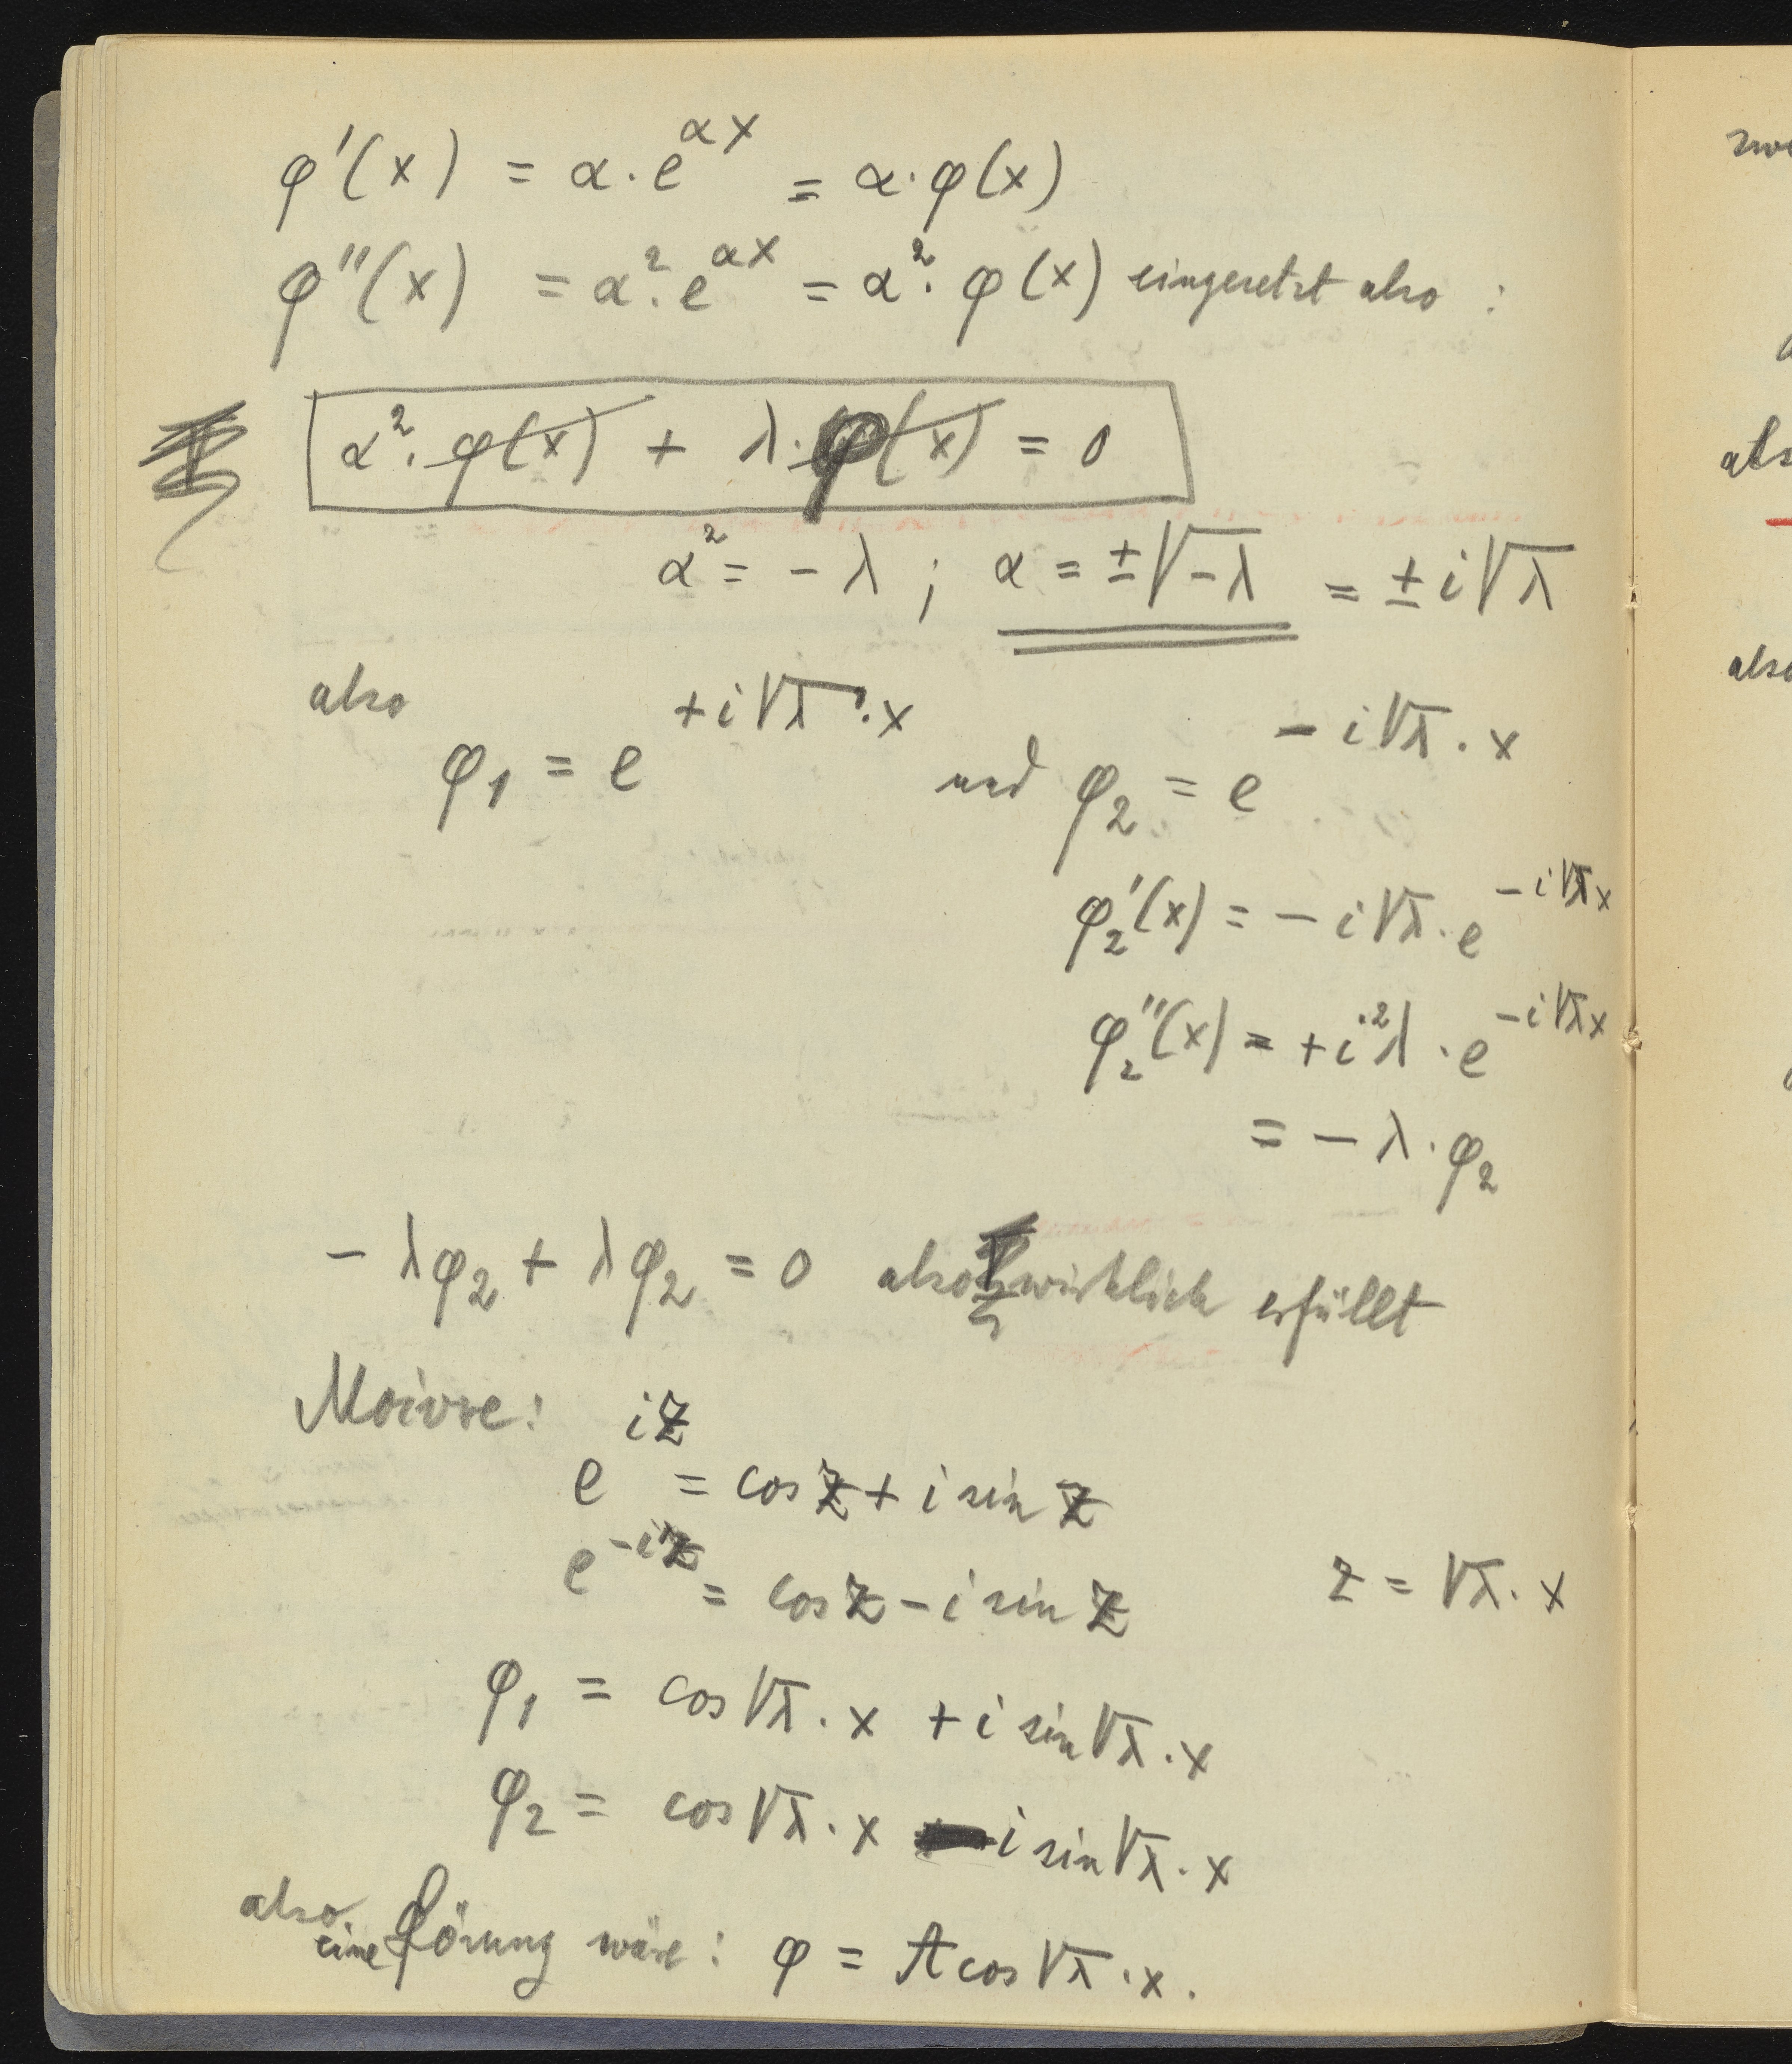 φ'(x) = α · e^{αx} = α · φ(x)
φ''(x) = α² · e^{αx} = α² · φ(x) eingesetzt also :
α² · φ(x) + λ · φ(x) = 0
α² = − λ ; α = ±√−λ = ± i√λ
also
φ₁ = e^{+i√λ · x} und φ₂ = e^{−i√λ · x}
φ₂'(x) = − i√λ · e^{−i√λ x}
φ₂''(x) = + i²λ · e^{−i√λ x}
= − λ · φ₂
− λφ₂ + λφ₂ = 0 also wirklich erfüllt
Moivre:
e^{iz} = cos z + i sin z
e^{−iz} = cos z − i sin z z = √λ · x
φ₁ = cos √λ · x + i sin √λ · x
φ₂ = cos √λ · x − i sin √λ · x
also eine Lösung wäre : φ = A cos √λ · x .
zwe
als
also